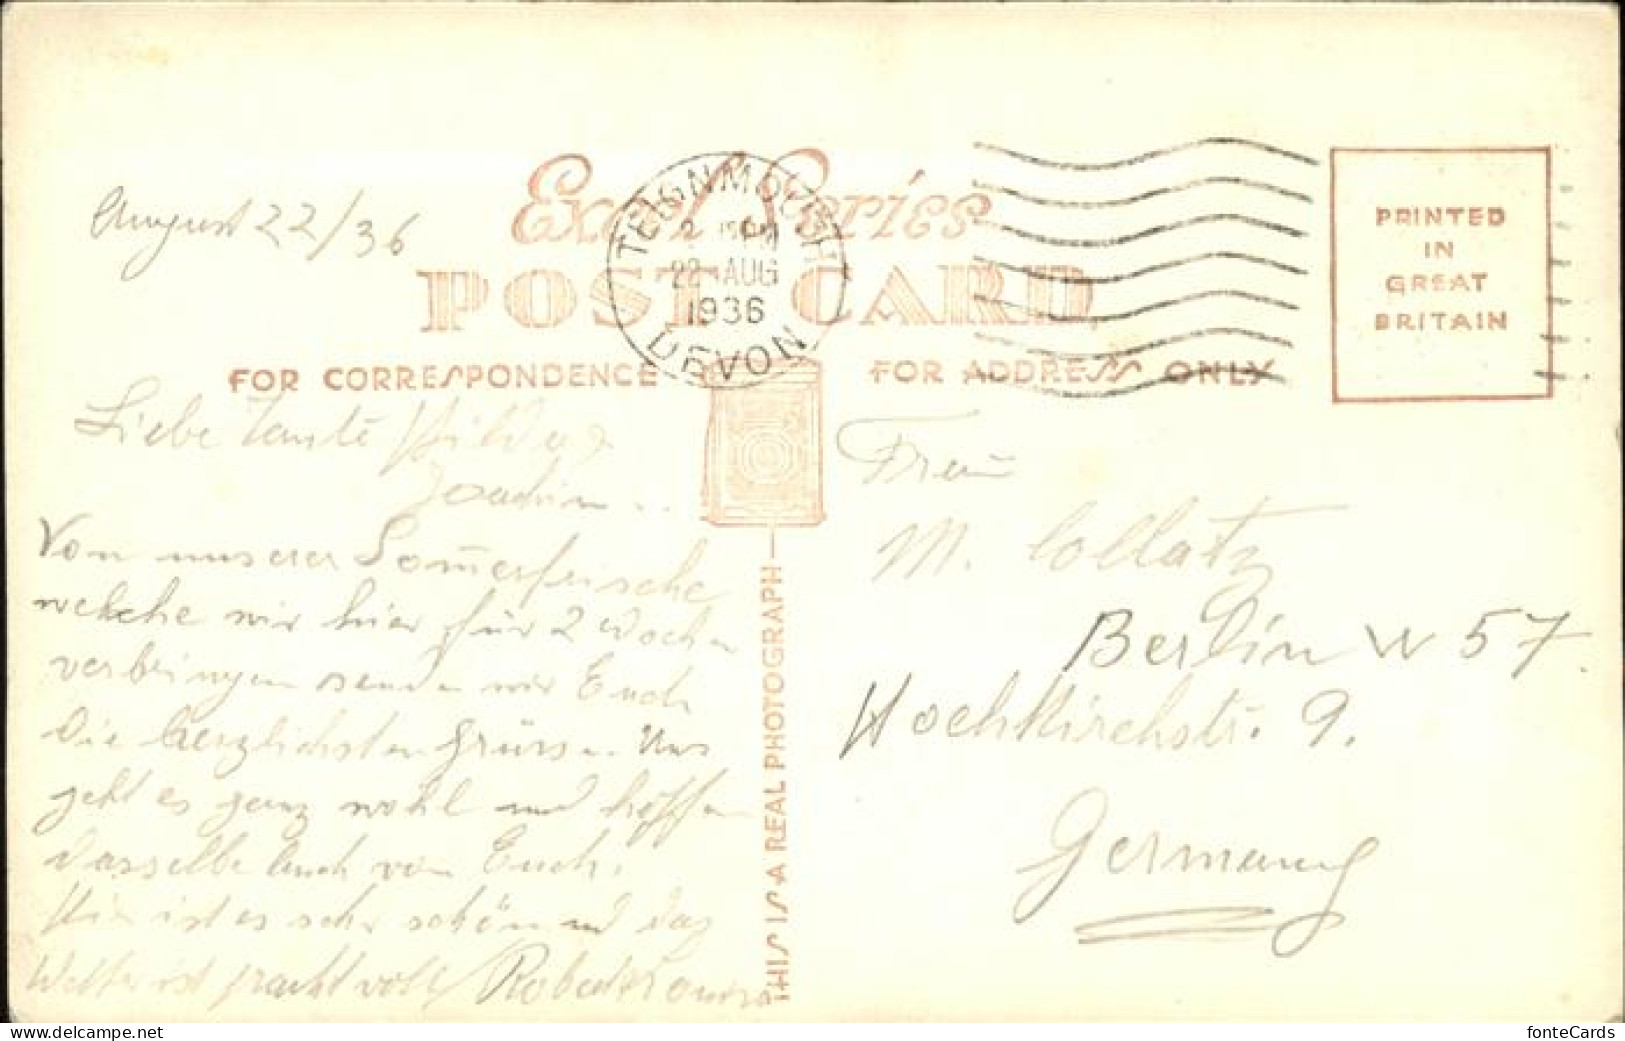 August 22/36
Excel Series
POST CARD
TEIGNMOUTH
2 15 PM
22 AUG
1936
DEVON
PRINTED
IN
GREAT
BRITAIN
FOR CORRESPONDENCE
FOR ADDRESS ONLY
Liebe Tante Hilde &
Joachim ..
Von unserer Som̅erfrische
welche wir hier für 2 Wochen
verbringen senden wir Euch
die herzlichsten Grüsse. Uns
geht es ganz wohl und hoffen
dasselbe auch von Euch.
Hier ist es sehr schön und das
Wetter ist prachtvoll
THIS IS A REAL PHOTOGRAPH
Frau
M. Collatz
Berlin W 57.
Hochkirchstr. 9.
Germany
fonteCards
www.delcampe.net